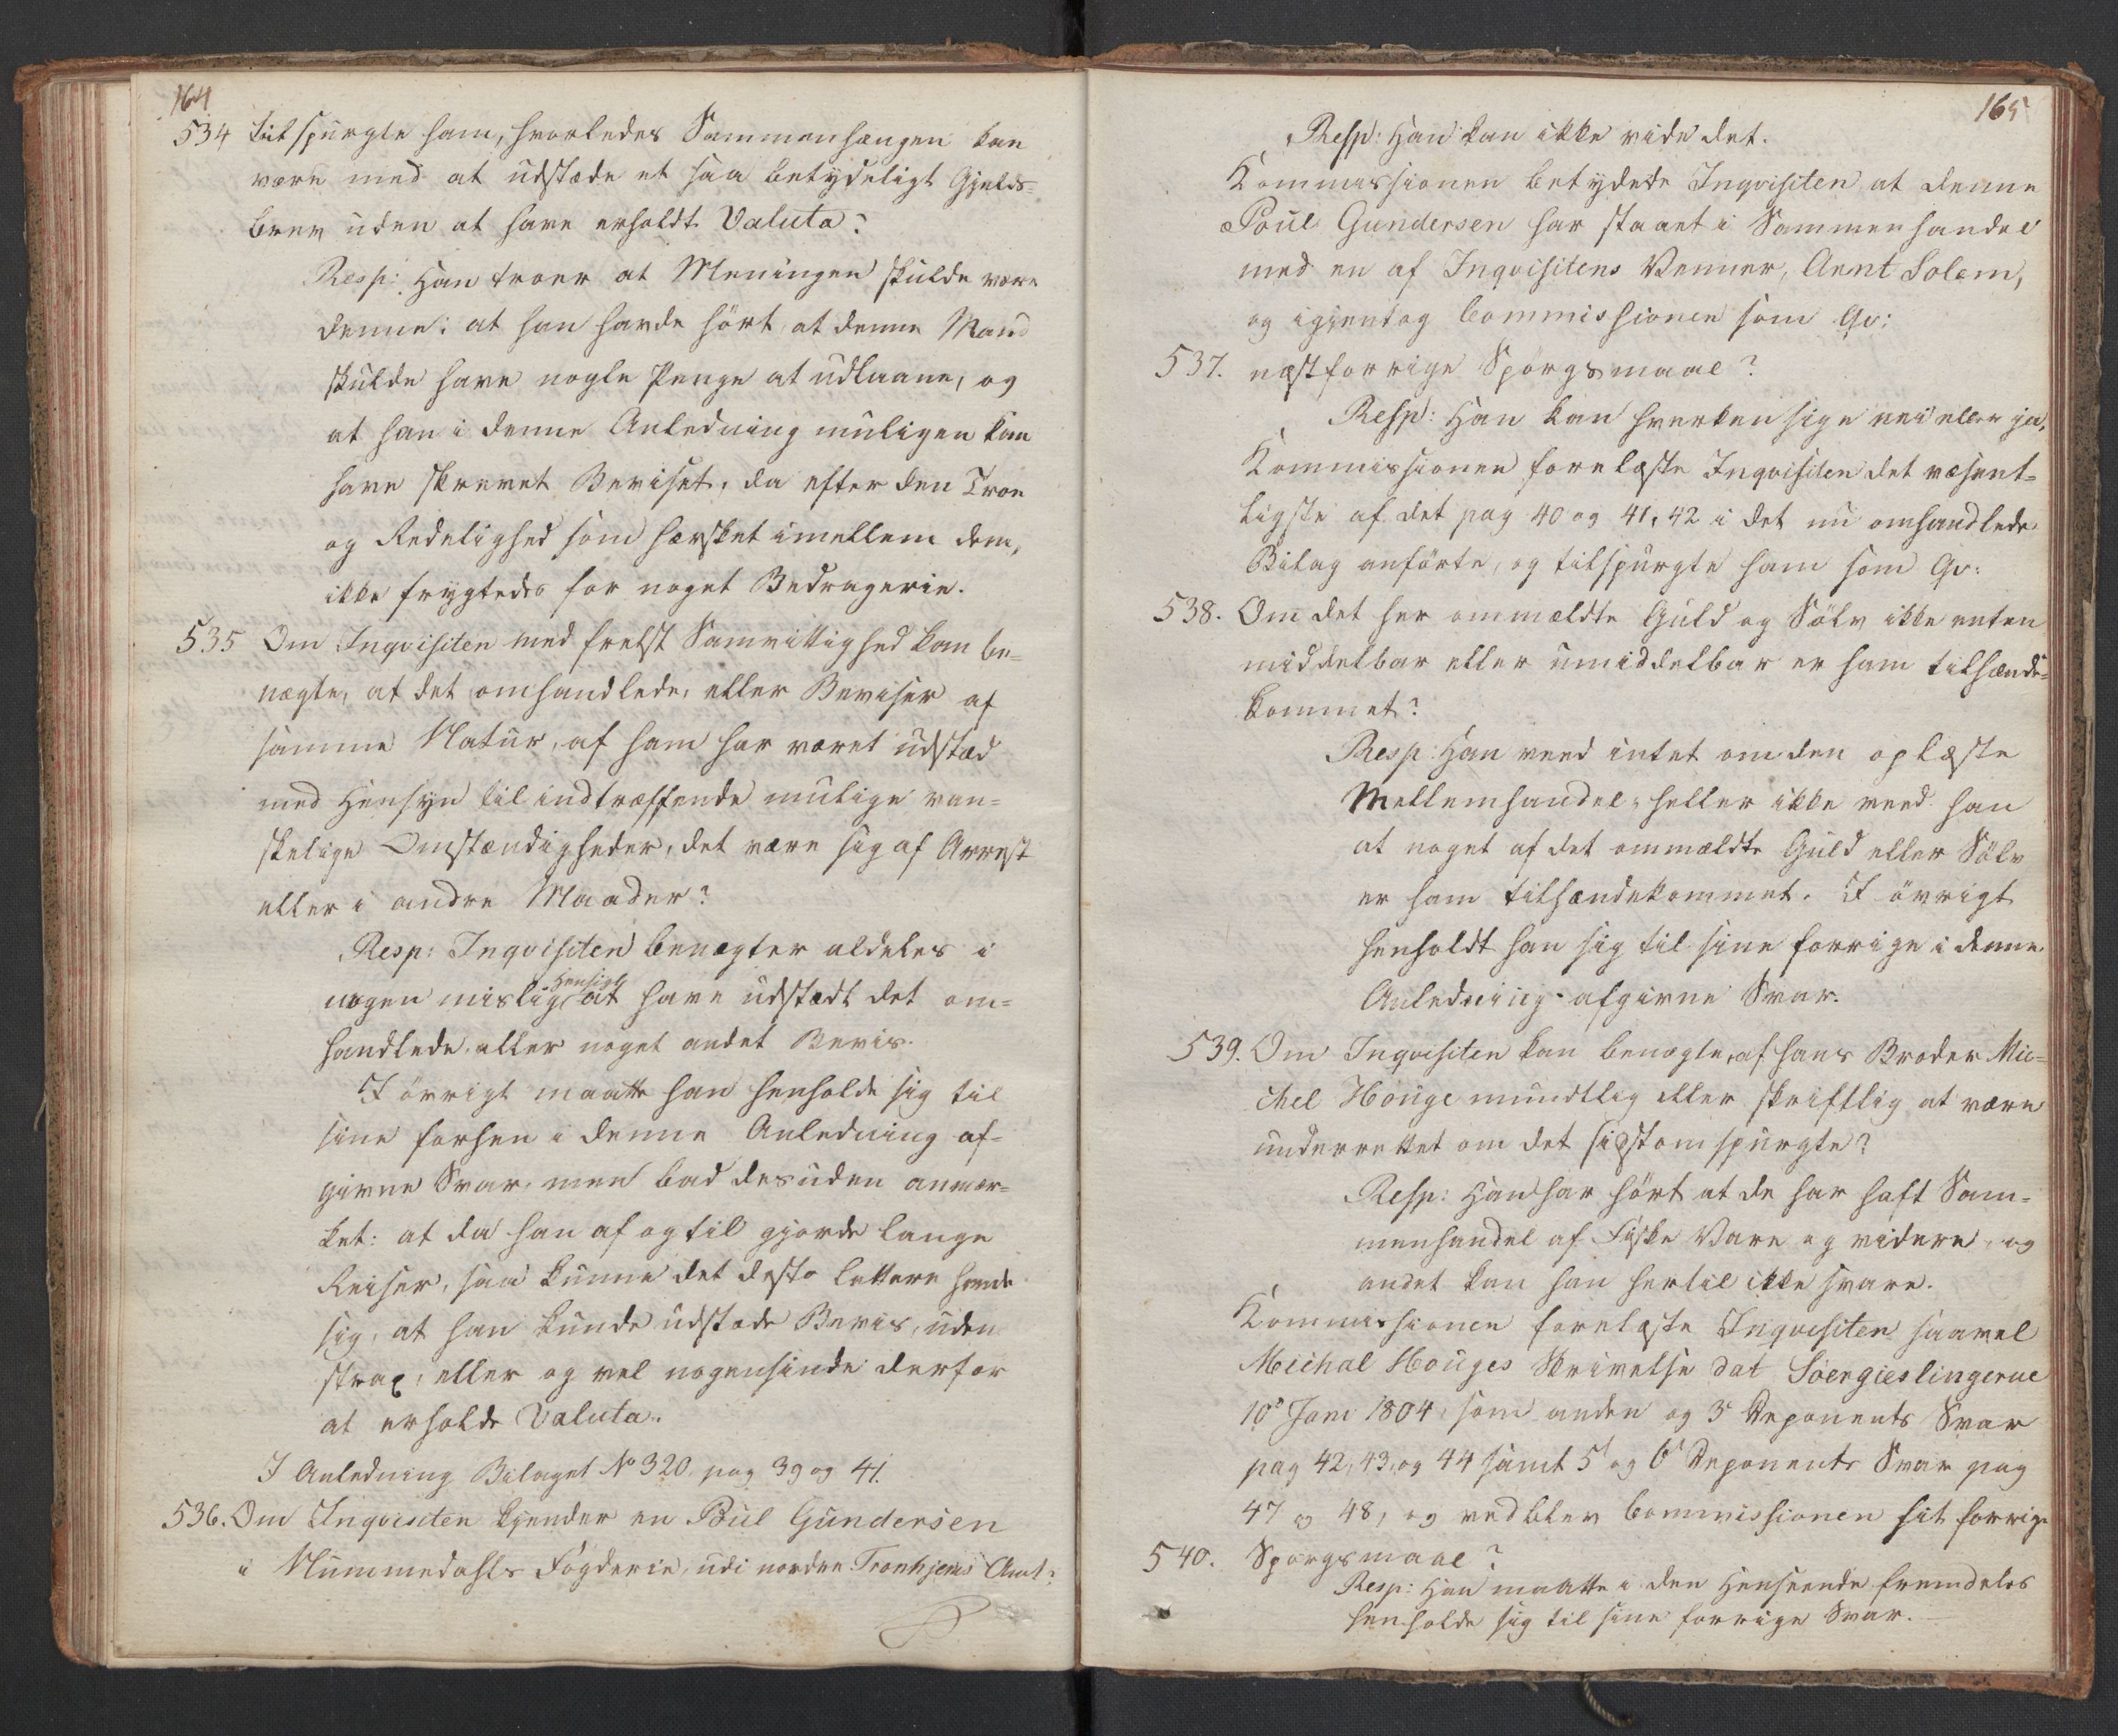 164
534 tilspurgte ham, hvorledes Sammenhængen kan
være med at udstæde et saa betydeligt Gjelds=
brev uden at have erholdt Valuta?
Resp: Han troer at Meningen skulde være
denne: at han havde hört, at denne Mand
skulde have nogle Penge at udlaane, og
at han i denne Anledning muligen kan
have skrevet Beviset, da efter den Troe
og Redelighed som herskede imellem dem,
ikke frygtedes for noget Bedragerie.
535 Om Inqvisiten med frelst Samvittighed kan be=
nægte, at det omhandlede, eller Beviser af
samme Natur, af ham har været udstæd
med Hensyn til indtræffende mulige van=
skelige Omstændigheder, det være sig af Arrest
eller i andre Maader?
Resp: Inqvisiten benægter aldeles i
nogen mislig Hensigt at have udstædt det om=
handlede eller noget andet Bevis.
I övrigt maatte han henholde sig til
sine forhen i denne Anledning af=
givne Svar, men bad desuden anmær=
ket: at da han af og til gjorde lange
Reiser, saa kunne det desto lettere hende
sig, at han kunde udstæde Bevis, uden
strax, eller og vel nogensinde derfor
at erholde Valuta.
I Anledning Bilaget No 320. pag 39 og 41.
536. Om Inqvisiten kjender en Poul Gundersen
i Nummedahls Fogderie, udi nordre Tronhjems Amt?
165
Resp: Han kan ikke vide det.
Kommissionen betydede Inqvisiten at denne
Poul Gundersen har staaet i Sammenhandel
med en af Inqvisitens Venner, Arnt Solem,
og igjentog Commissionen som Qv:
537. næstforrige Spörgsmaal?
Resp: Han kan hverken sige nei eller ja.
Kommissionen forelæste Inqvisiten det væsent=
ligste af det pag 40 og 41, 42 i det nu omhandlede
Bilag anförte, og tilspurgte ham som Qv:
538. Om det her ommældte Guld og Sölv ikke enten
middelbar eller umiddelbar er ham tilhænde=
kommet?
Resp: Han veed intet om den oplæste
Mellemhandel, heller ikke veed han
at noget af det ommældte Guld eller Sölv
er ham tilhændekommet. I övrigt
henholdt han sig til sine forrige i denne
Anledning afgivne Svar.
539. Om Inqvisiten kan benægte, af hans Broder Mic=
chel Houge mundtlig eller skriftlig at være
underrettet om det sidstomspurgte?
Resp: Han har hört at de har haft Sam=
menhandel af Fiske Vare og videre, og
andet kan han hertil ikke svare.
Kommissionen forelæste Inqvisiten saavel
Michal Houges Skrivelse dat Söergieslingerne
10de Jani 1804, som anden og 3de Deponents Svar
pag 42, 43, og 44 samt 5te og 6te Deponents Svar pag
47 og 48, og vedblev Commissionen sit forrige
540. Spörgsmaal?
Resp: Han maatte i den Henseende fremdeles
henholde sig til sine forrige Svar.